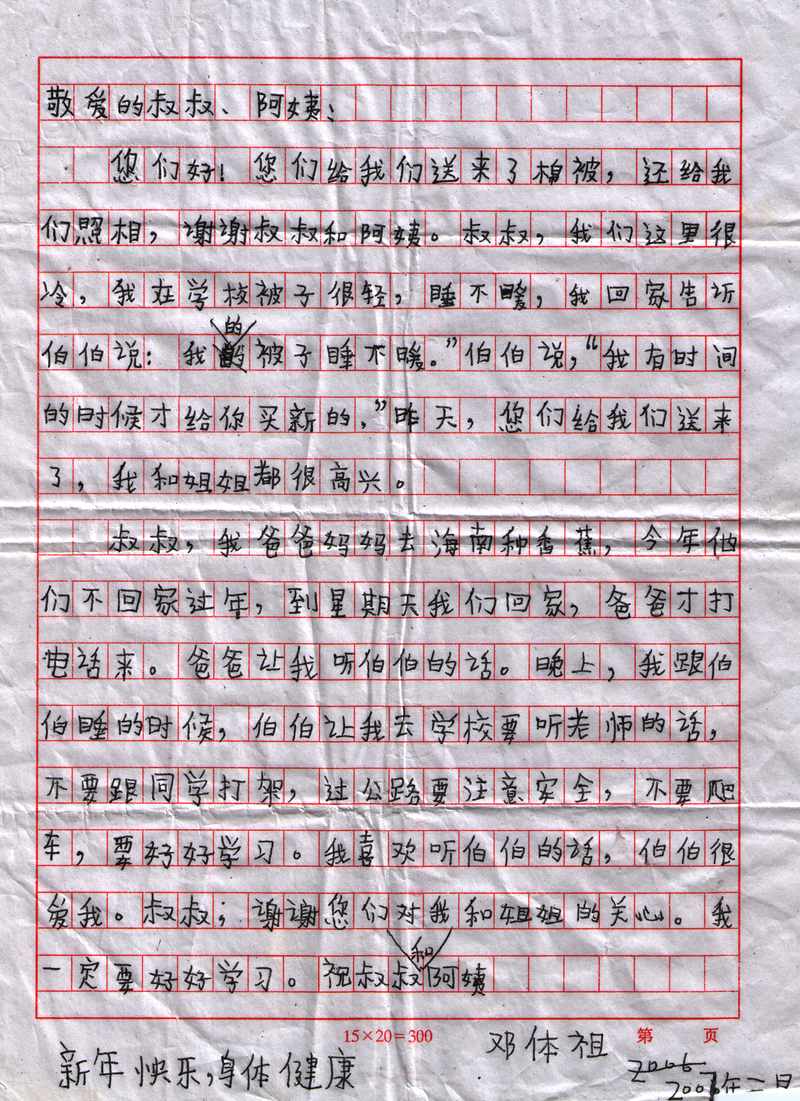 敬爱的叔叔、阿姨：
您们好！您们给我们送来了棉被，还给我
们照相，谢谢叔叔和阿姨。叔叔，我们这里很
冷，我在学校被子很轻，睡不暖，我回家告诉
伯伯说：我的被子睡不暖。”伯伯说，“我有时间
的时候才给你买新的，”昨天，您们给我们送来
了，我和姐姐都很高兴。
叔叔，我爸爸妈妈去海南种香蕉，今年他
们不回家过年，到星期天我们回家，爸爸才打
电话来。爸爸让我听伯伯的话。晚上，我跟伯
伯睡的时候，伯伯让我去学校要听老师的话，
不要跟同学打架，过公路要注意安全，不要爬
车，要好好学习。我喜欢听伯伯的话，伯伯很
爱我。叔叔；谢谢您们对我和姐姐的关心。我
一定要好好学习。祝叔叔和阿姨
15×20=300
邓体祖
第 页
新年快乐，身体健康
2006
2007年二日